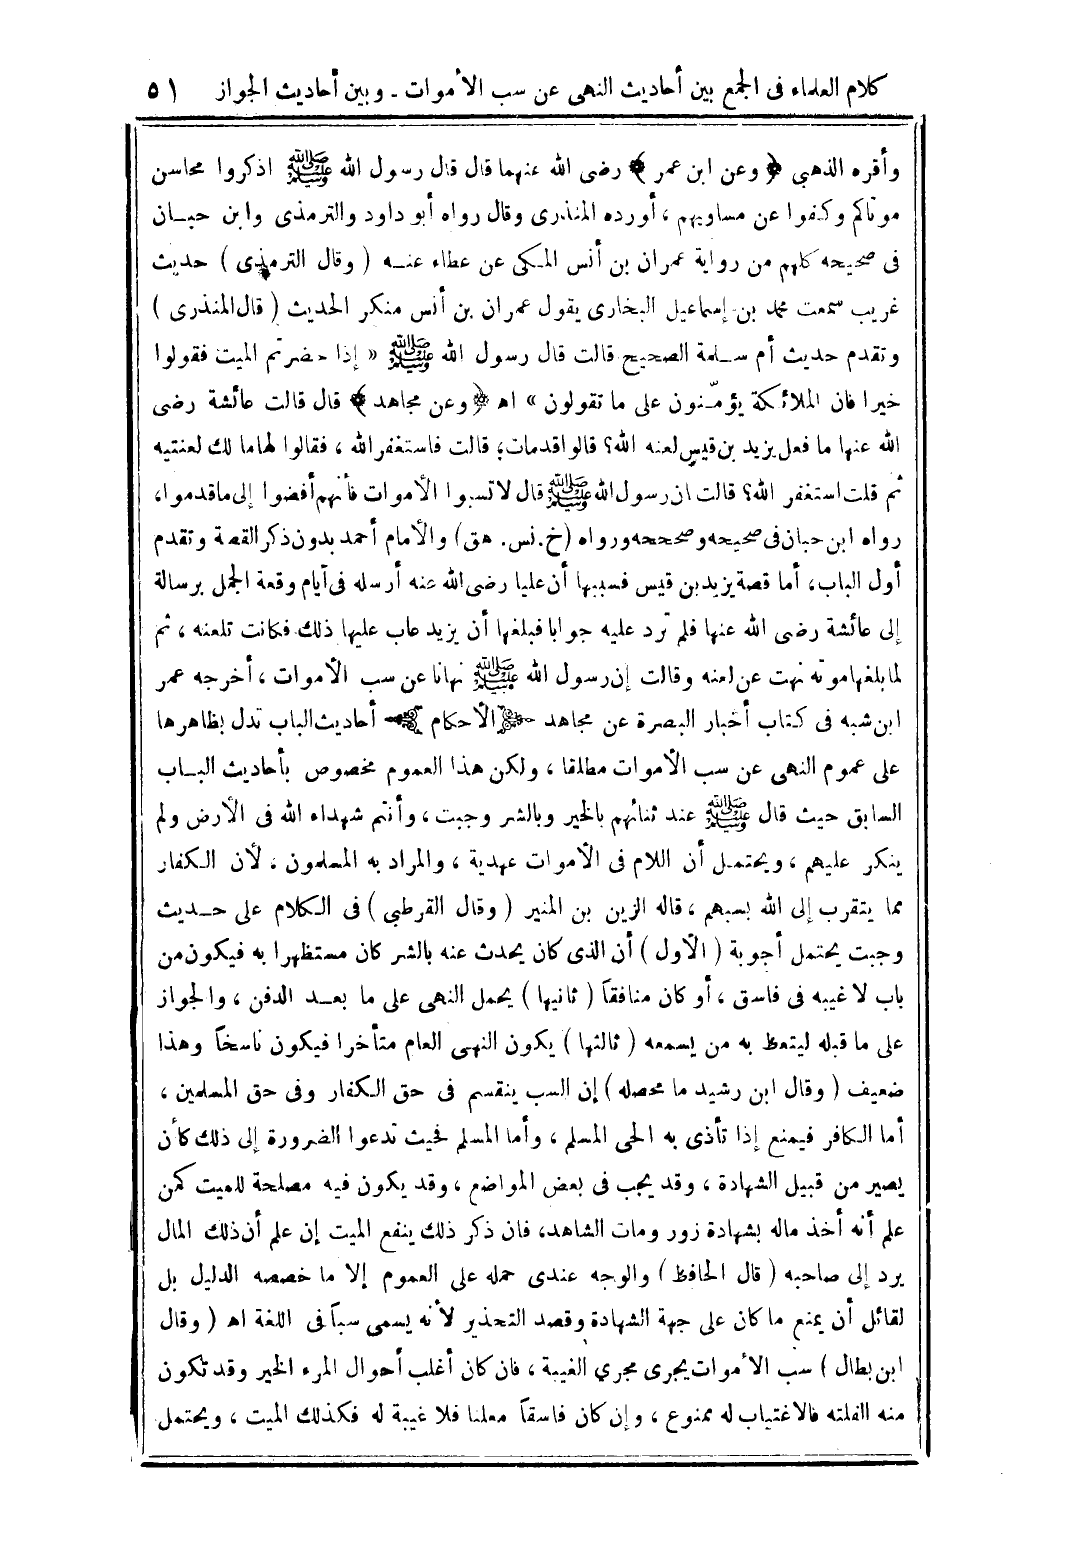 كلام العلماء فى الجمع بين أحاديث النهى عن سب الأموات - وبين أحاديث الجواز ٥١
وأقره الذهبى ﴿ وعن ابن عمر ﴾ رضى الله عنهما قال قال رسول الله ﷺ اذكروا محاسن
موتاكم وكفوا عن مساويهم ، أورده المنذرى وقال رواه أبو داود والترمذى وابن حبان
فى صحيحه كلهم من رواية عمران بن أنس المكى عن عطاء عنه ( وقال الترمذى ) حديث
غريب سمعت محمد بن إسماعيل البخارى يقول عمران بن أنس منكر الحديث ( قال المنذرى )
وتقدم حديث أم سلمة الصحيح قالت قال رسول الله ﷺ « إذا حضرتم الميت فقولوا
خيرا فان الملائكة يؤمّنون على ما تقولون » اه ﴿ وعن مجاهد ﴾ قال قالت عائشة رضى
الله عنها ما فعل يزيد بن قيس لعنه الله؟ قالوا قد مات؛ قالت فاستغفر الله ، فقالوا لها ما لك لعنتيه
ثم قلت استغفر الله؟ قالت ان رسول الله ﷺ قال لا تسبوا الأموات فأنهم أفضوا إلى ما قدموا،
رواه ابن حبان فى صحيحه وصححه ورواه (خ. نس. هق) والأمام أحمد بدون ذكر القصة وتقدم
أول الباب، أما قصة يزيد بن قيس فسببها أن عليا رضى الله عنه أرسله فى آيام وقعة الجمل برسالة
إلى عائشة رضى الله عنها فلم ترد عليه جوابا فبلغها أن يزيد عاب عليها ذلك فكانت تلعنه ، ثم
لما بلغها موته نهت عن لعنه وقالت إن رسول الله ﷺ نهانا عن سب الأموات ، أخرجه عمر
ابن شبه فى كتاب أخبار البصرة عن مجاهد ﴿ الأحكام ﴾ أحاديث الباب تدل بظاهرها
على عموم النهى عن سب الأموات مطلقا ، ولكن هذا العموم مخصوص بأحاديث الباب
السابق حيث قال ﷺ عند ثنائهم بالخير وبالشر وجبت ، وأنتم شهداء الله فى الأرض ولم
ينكر عليهم ، ويحتمل أن اللام فى الأموات عهدية ، والمراد به المسلمون ، لأن الكفار
مما يتقرب إلى الله بسبهم ، قاله الزين بن المنير ( وقال القرطبى ) فى الكلام على حديث
وجبت يحتمل أجوبة ( الأول ) أن الذى كان يحدث عنه بالشر كان مستظهرا به فيكون من
باب لا غيبه فى فاسق ، أو كان منافقاً ( ثانيها ) يحمل النهى على ما بعد الدفن ، والجواز
على ما قبله ليتعظ به من يسمعه ( ثالثها ) يكون النهى العام متأخرا فيكون ناسخاً وهذا
ضعيف ( وقال ابن رشيد ما محصله ) إن السب ينقسم فى حق الكفار وفى حق المسلمين ،
أما الكافر فيمنع إذا تأذى به الحى المسلم ، وأما المسلم فحيث تدعوا الضرورة إلى ذلك كأن
يصير من قبيل الشهادة ، وقد يجب فى بعض المواضع ، وقد يكون فيه مصلحة للميت كمن
علم أنه أخذ ماله بشهادة زور ومات الشاهد، فان ذكر ذلك ينفع الميت إن علم أن ذلك المال
يرد إلى صاحبه ( قال الحافظ ) والوجه عندى حمله على العموم إلا ما خصصه الدليل بل
لقائل أن يمنع ما كان على جهة الشهادة وقصد التحذير لأنه يسمى سباً فى اللغة اه ( وقال
ابن بطال ) سب الأموات يجرى مجري الغيبة ، فان كان أغلب أحوال المرء الخير وقد تكون
منه الفلته فالاغتياب له ممنوع ، وإن كان فاسقاً معلنا فلا غيبة له فكذلك الميت ، ويحتمل